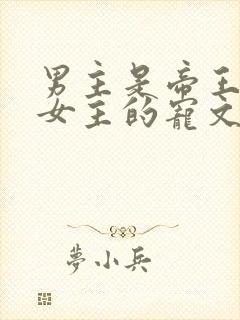 男主是帝王
女主的寵文
夢小兵